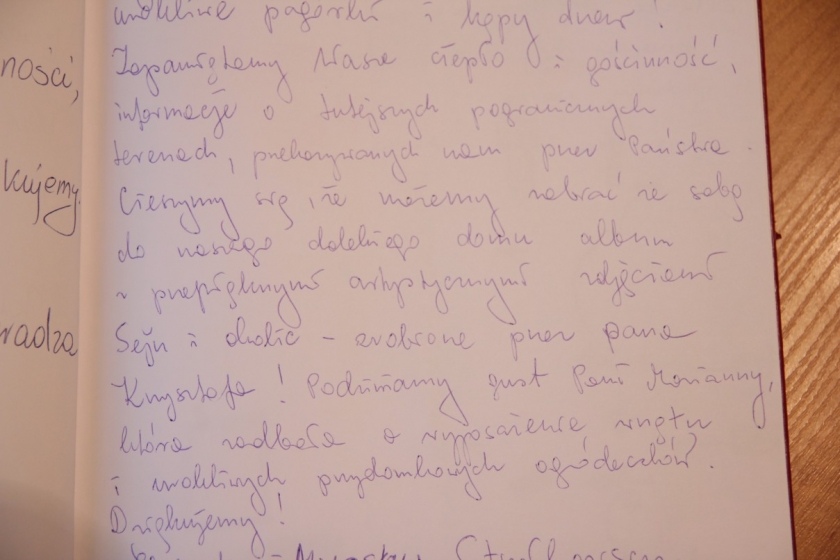 ności,
kujemy
radza
urokliwe pagórki i kępy drzew!
Zapamiętamy Wasze ciepło i gościnność,
informacje o tutejszych pogranicznych
terenach, przekazywanych nam przez Państwa.
Cieszymy się, że możemy zabrać ze sobą
do naszego dalekiego domu album
z przepięknymi artystycznymi zdjęciami
Sejn i okolic - zrobione przez pana
Krzysztofa! Podziwiamy gust Pani Marianny,
która zadbała o wyposażenie wnętrz
i urokliwych przydomkowych ogródeczków.
Dziękujemy!